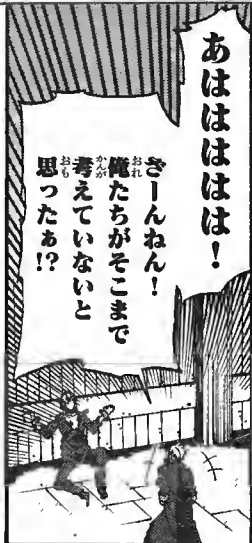 あはははははは！
ざーんねん！
俺たちがそこまで
考えていないと
思ったぁ!?